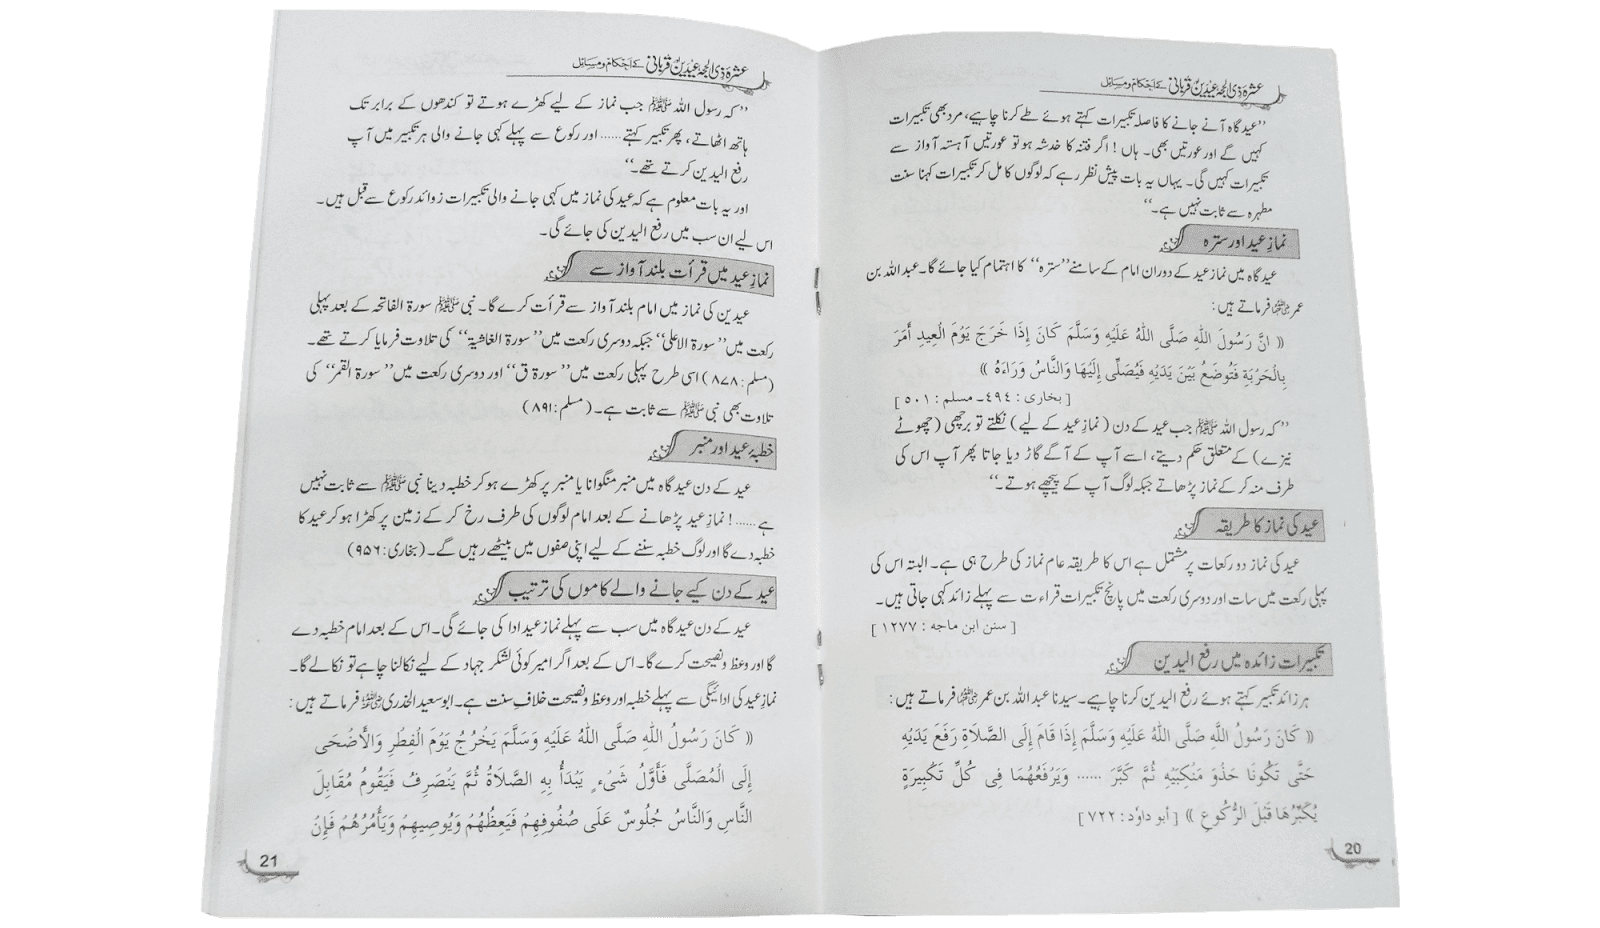 عشرہ ذی الحجہ عیدین قربانی کے احکام و مسائل
”عید گاہ آنے جانے کا فاصلہ تکبیرات کہتے ہوئے طے کرنا چاہیے، مرد بھی تکبیرات
کہیں گے اور عورتیں بھی۔ ہاں! اگر فتنہ کا خدشہ ہو تو عورتیں آہستہ آواز سے
تکبیرات کہیں گی۔ یہاں یہ بات پیش نظر رہے کہ لوگوں کا مل کر تکبیرات کہنا سنت
مطہرہ سے ثابت نہیں ہے۔“
نمازِ عید اور سترہ
عید گاہ میں نماز عید کے دوران امام کے سامنے ”سترہ“ کا اہتمام کیا جائے گا۔ عبد اللہ بن
عمر رضی اللہ عنہما فرماتے ہیں:
(( انَّ رَسُولَ اللّٰهِ صَلَّى اللّٰهُ عَلَيْهِ وَسَلَّمَ كَانَ إِذَا خَرَجَ يَوْمَ الْعِيدِ أَمَرَ
بِالْحَرْبَةِ فَتُوضَعُ بَيْنَ يَدَيْهِ فَيُصَلِّي إِلَيْهَا وَالنَّاسُ وَرَاءَهُ ))
[ بخاری : ٤٩٤۔ مسلم : ٥٠١ ]
”کہ رسول اللہ ﷺ جب عید کے دن (نماز عید کے لیے) نکلتے تو برچھی (چھوٹے
نیزے) کے متعلق حکم دیتے، اسے آپ کے آگے گاڑ دیا جاتا پھر آپ اس کی
طرف منہ کر کے نماز پڑھاتے جبکہ لوگ آپ کے پیچھے ہوتے۔“
عید کی نماز کا طریقہ
عید کی نماز دو رکعات پر مشتمل ہے اس کا طریقہ عام نماز کی طرح ہی ہے۔ البتہ اس کی
پہلی رکعت میں سات اور دوسری رکعت میں پانچ تکبیرات قراءت سے پہلے زائد کہی جاتی ہیں۔
[ سنن ابن ماجه : ١٢٧٧ ]
تکبیرات زائدہ میں رفع الیدین
ہر زائد تکبیر کہتے ہوئے رفع الیدین کرنا چاہیے۔ سیدنا عبد اللہ بن عمر رضی اللہ عنہما فرماتے ہیں:
(( كَانَ رَسُولُ اللّٰهِ صَلَّى اللّٰهُ عَلَيْهِ وَسَلَّمَ إِذَا قَامَ إِلَى الصَّلَاةِ رَفَعَ يَدَيْهِ
حَتَّى تَكُونَا حَذْوَ مَنْكِبَيْهِ ثُمَّ كَبَّرَ ...... وَيَرْفَعُهُمَا فِى كُلِّ تَكْبِيرَةٍ
يُكَبِّرُهَا قَبْلَ الرُّكُوعِ )) [ أبو داوٗد : ٧٢٢ ]
20
عشرہ ذی الحجہ عیدین قربانی کے احکام و مسائل
”کہ رسول اللہ ﷺ جب نماز کے لیے کھڑے ہوتے تو کندھوں کے برابر تک
ہاتھ اٹھاتے، پھر تکبیر کہتے...... اور رکوع سے پہلے کہی جانے والی ہر تکبیر میں آپ
رفع الیدین کرتے تھے۔“
اور یہ بات معلوم ہے کہ عید کی نماز میں کہی جانے والی تکبیرات زوائد رکوع سے قبل ہیں۔
اس لیے ان سب میں رفع الیدین کی جائے گی۔
نماز عید میں قرأت بلند آواز سے
عیدین کی نماز میں امام بلند آواز سے قرأت کرے گا۔ نبی ﷺ سورۃ الفاتحہ کے بعد پہلی
رکعت میں ”سورۃ الاعلیٰ“ جبکہ دوسری رکعت میں ”سورۃ الغاشیۃ“ کی تلاوت فرمایا کرتے تھے۔
(مسلم: ۸۷۸) اسی طرح پہلی رکعت میں ”سورۃ ق“ اور دوسری رکعت میں ”سورۃ القمر“ کی
تلاوت بھی نبی ﷺ سے ثابت ہے۔ (مسلم: ۸۹۱)
خطبہٴ عید اور منبر
عید کے دن عید گاہ میں منبر منگوانا یا منبر پر کھڑے ہو کر خطبہ دینا نبی ﷺ سے ثابت نہیں
ہے......! نماز عید پڑھانے کے بعد امام لوگوں کی طرف رخ کر کے زمین پر کھڑا ہو کر عید کا
خطبہ دے گا اور لوگ خطبہ سننے کے لیے اپنی صفوں میں بیٹھے رہیں گے۔ (بخاری: ۹۵۶)
عید کے دن کیے جانے والے کاموں کی ترتیب
عید کے دن عید گاہ میں سب سے پہلے نماز عید ادا کی جائے گی۔ اس کے بعد امام خطبہ دے
گا اور وعظ و نصیحت کرے گا۔ اس کے بعد اگر امیر کوئی لشکر جہاد کے لیے نکالنا چاہے تو نکالے گا۔
نماز عید کی ادائیگی سے پہلے خطبہ اور وعظ و نصیحت خلاف سنت ہے۔ ابو سعید الخدری رضی اللہ عنہ فرماتے ہیں:
(( كَانَ رَسُولُ اللّٰهِ صَلَّى اللّٰهُ عَلَيْهِ وَسَلَّمَ يَخْرُجُ يَوْمَ الْفِطْرِ وَالْأَضْحَى
إِلَى الْمُصَلَّى فَأَوَّلُ شَىْءٍ يَبْدَأُ بِهِ الصَّلَاةُ ثُمَّ يَنْصَرِفُ فَيَقُومُ مُقَابِلَ
النَّاسِ وَالنَّاسُ جُلُوسٌ عَلَى صُفُوفِهِمْ فَيَعِظُهُمْ وَيُوصِيهِمْ وَيَأْمُرُهُمْ فَإِنْ
21